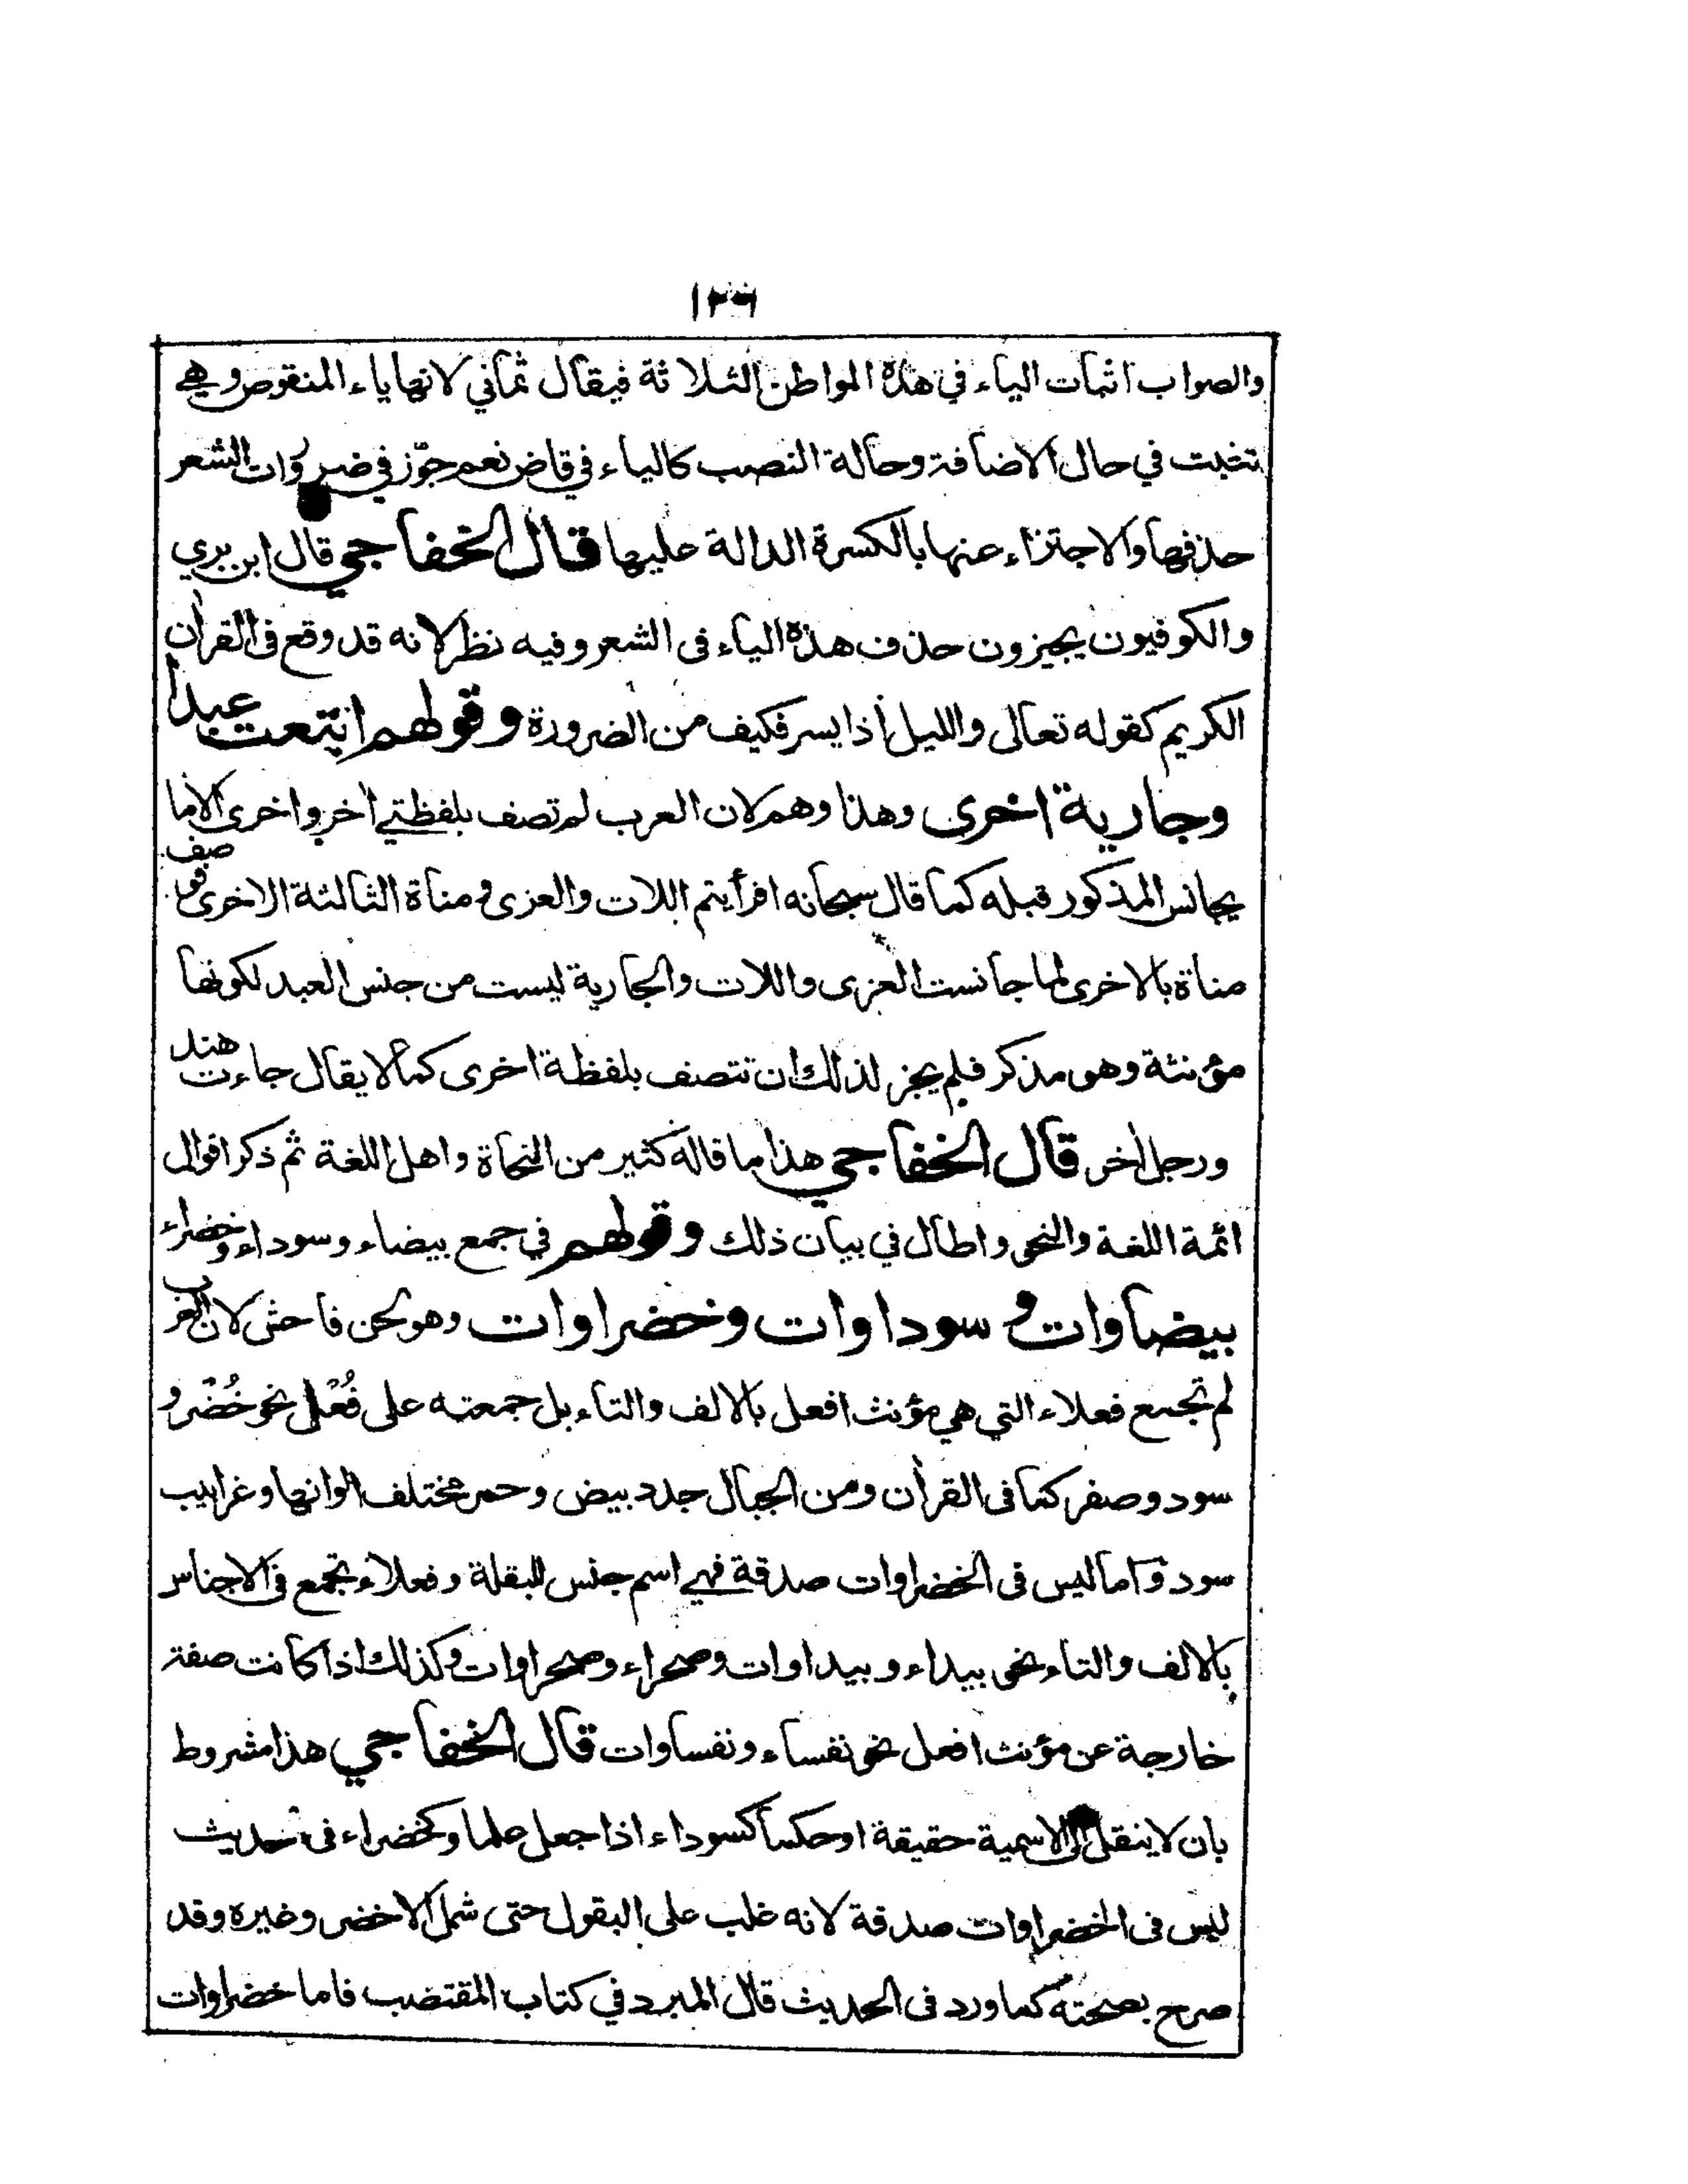 ١٣٦
والصواب اثبات الياء في هذه المواطن الثلاثة فيقال ثماني لانها ياء المنقوص وهي
تثبت في حال الاضافة وحالة النصب كالياء في قاض نعم جوّز في ضرورات الشعر
حذفها والاجتزاء عنها بالكسرة الدالة عليها قال الخفاجي قال ابن بري
والكوفيون يجيزون حذف هذه الياء فى الشعر وفيه نظر لانه قد وقع فى القرأن
الكريم كقوله تعالى والليل أذا يسر فكيف من الضرورة وقولهم ابتعت عبدا
وجارية اخرى وهذا وهم لان العرب لم تصف بلفظتي أخر واخرى الا ما
يجانس المذكور قبله كما قال سبحانه افرأيتم اللات والعزى ومناة الثالثة الاخرى فوصف
مناة بالاخرى لما جانست العزى واللات والجارية ليست من جنس العبد لكونها
مؤنثة وهو مذكر فلم يجز لذلك ان تتصف بلفظة اخرى كما لا يقال جاءت هند
ورجل أخر قال الخفاجي هذا ما قاله كثير من النحاة واهل اللغة ثم ذكر اقوال
ائمة اللغة والنحو واطال في بيان ذلك وقولهم في جمع بيضاء وسوداء وخضراء
بيضاوات وسوداوات وخضراوات وهو لحن فاحش لان العرب
لم تجمع فعلاء التي هي مؤنث افعل بالالف والتاء بل جمعته على فُعْل نحو خُضْر و
سود وصفر كما فى القرأن ومن الجبال جدد بيض وحمر مختلف الوانها وغرابيب
سود واما ليس فى الخضراوات صدقة فهي اسم جنس للبقلة وفعلاء تجمع فى الاجناس
بالالف والتاء نحو بيداء وبيداوات وصحراء وصحراوات وكذلك اذا كانت صفة
خارجة عن مؤنث افعل نحو نفساء ونفساوات قال الخفاجي هذا مشروط
بان لا ينقل الى الاسمية حقيقة او حكما كسوداء اذا جعل علما وكخضراء فى حديث
ليس فى الخضراوات صدقة لانه غلب على البقول حتى شمل الاخضر وغيره وقد
صرح بصحته كما ورد فى الحديث قال المبرد في كتاب المقتضب فاما خضراوات